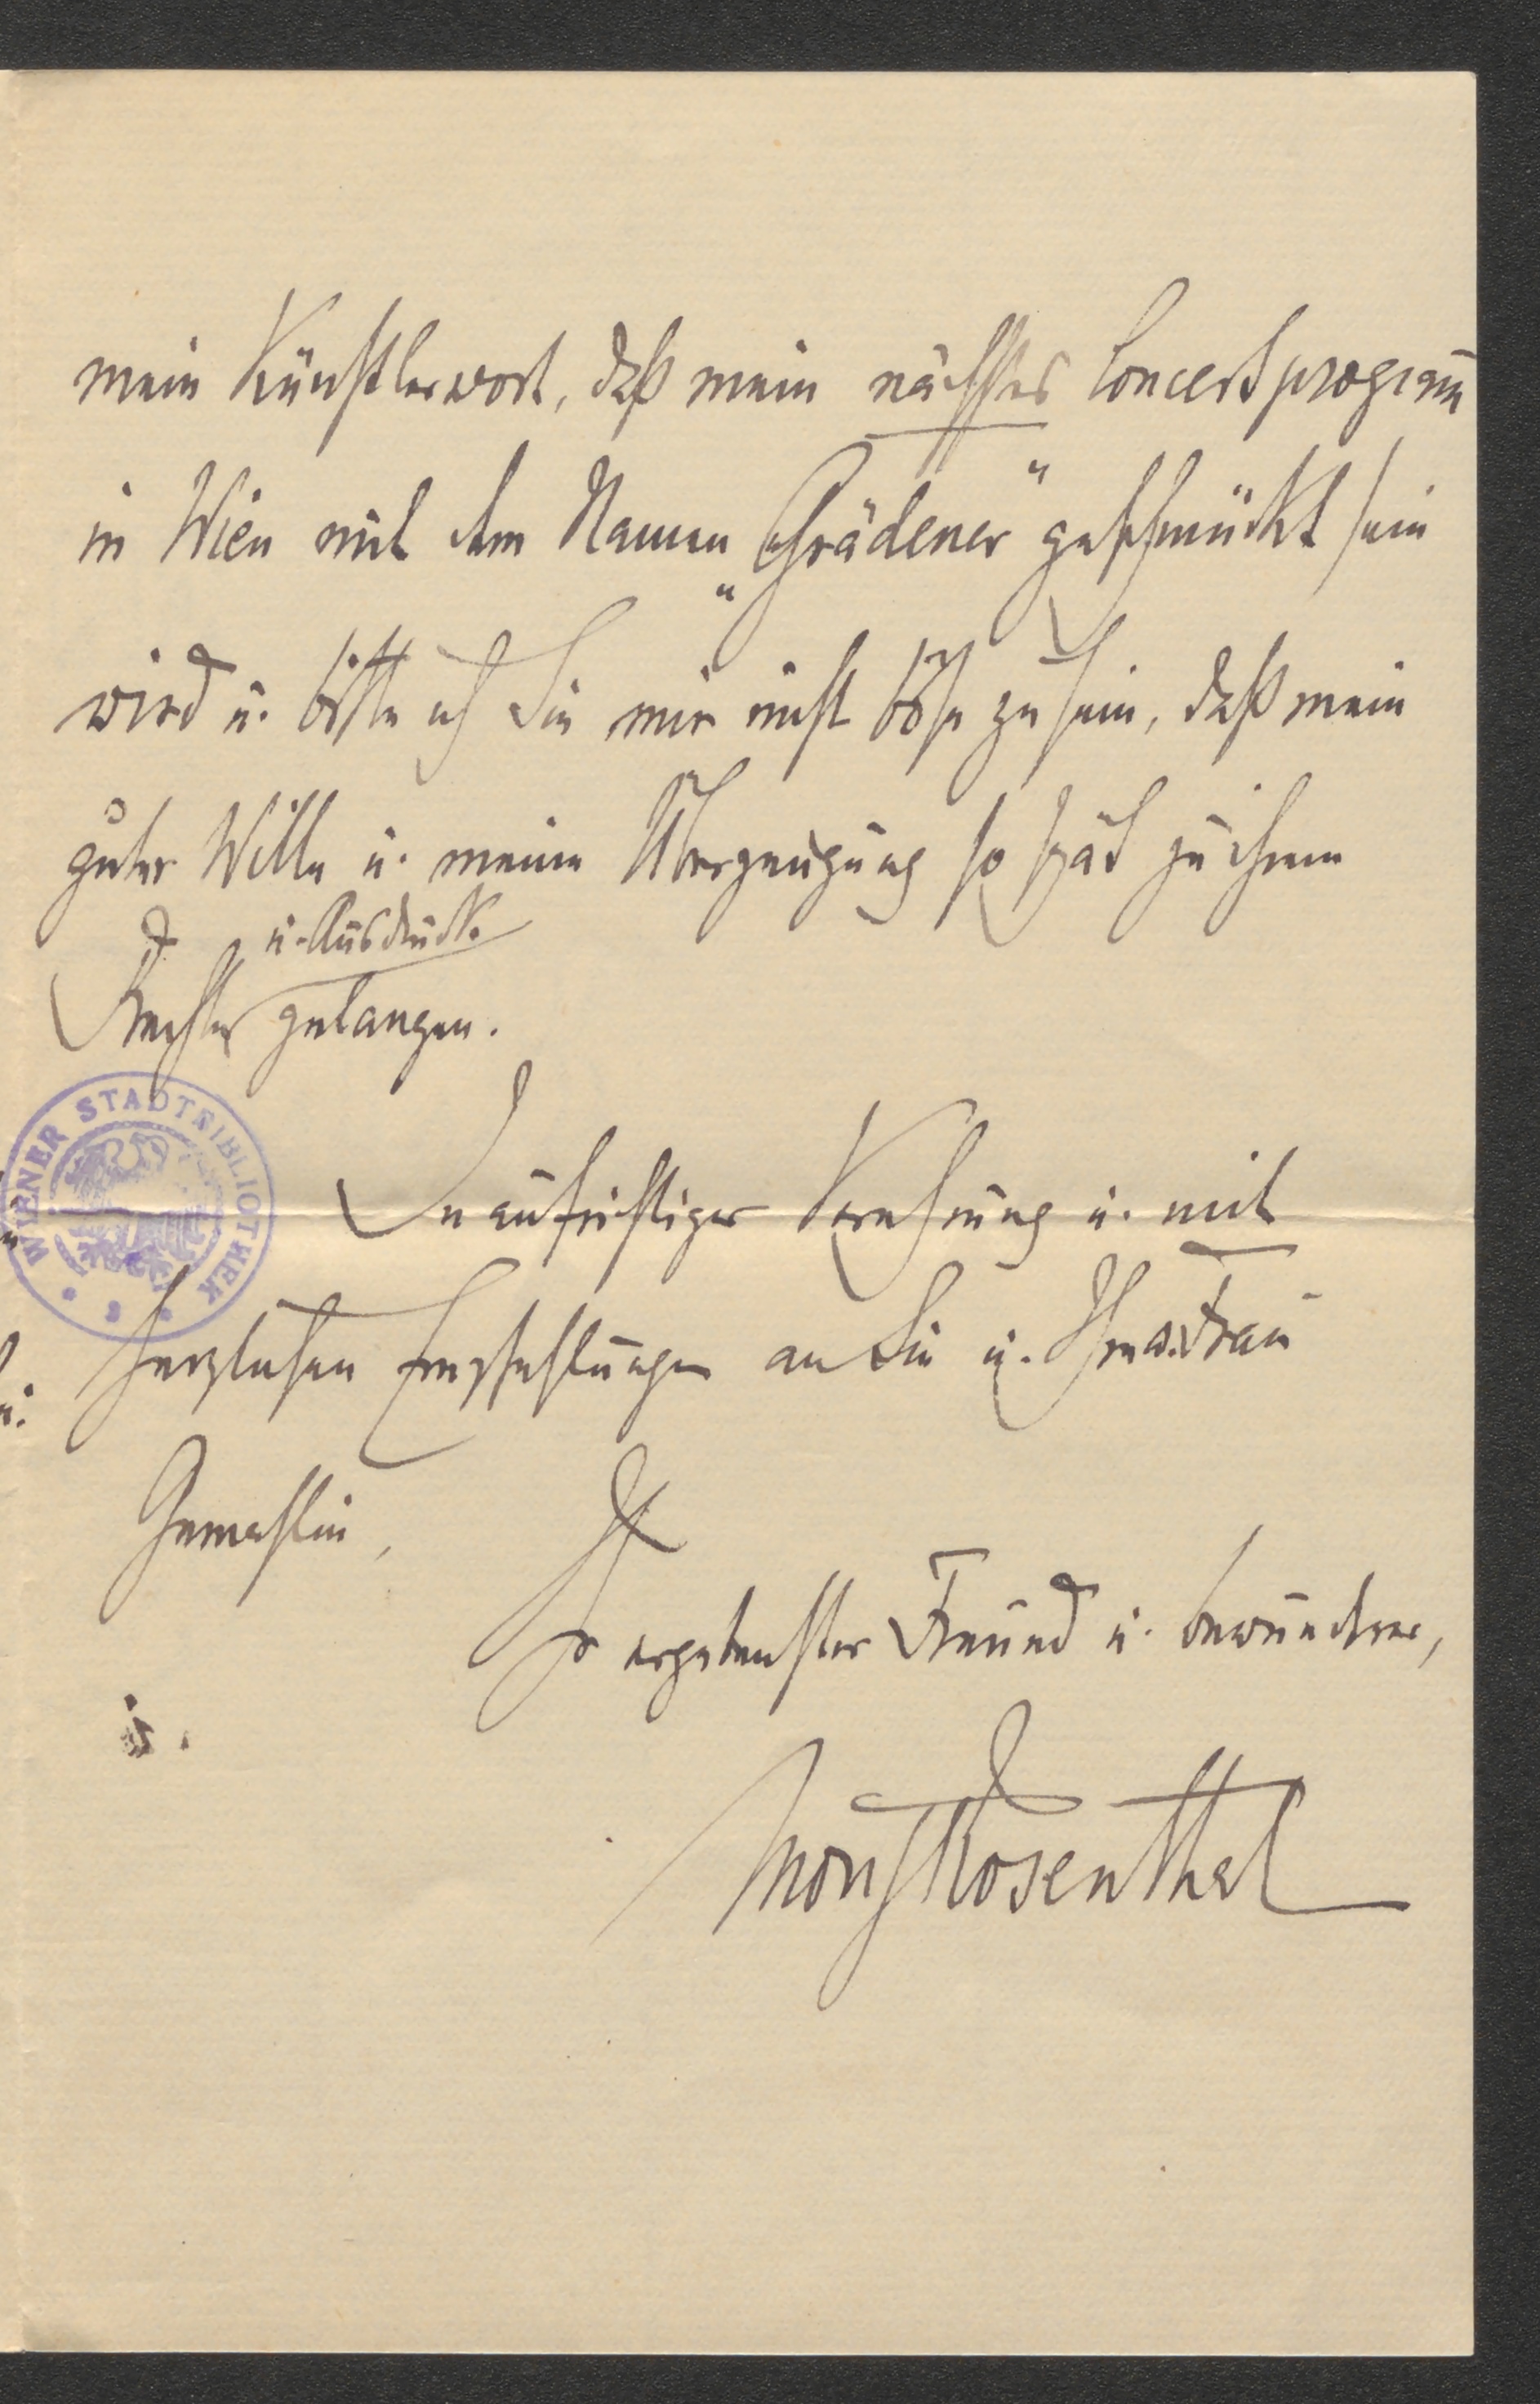 mein Künstlerwort, daß mein nächstes Concertprogram̅
in Wien mit dem Namen „Grädener“ geschmückt sein
wird u. bitte ich Sie mir nicht böse zu sein, daß mein
guter Wille u. meine Überzeugung so spät zu ihrem
u. Ausdruck
Rechte gelangen.
In aufrichtiger Verehrung u. mit
herzlichen Empfehlungen an Sie u. Ihre Frau
Gemahlin,
Ihr ergebenster Freund u. Bewunderer,
u.
Moriz Rosenthal
WIENER STADTBIBLIOTHEK